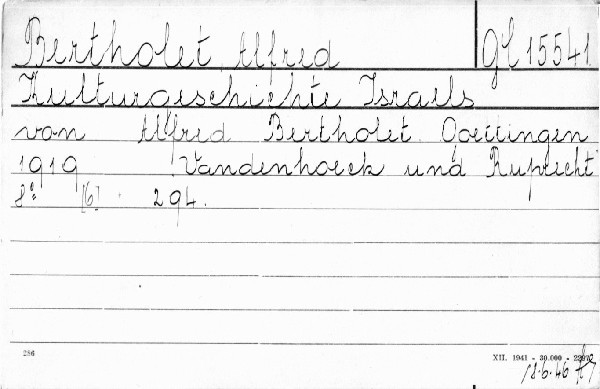 Bertholet Alfred GL 15541
Kulturgeschichte Israels
von Alfred Bertholet. Goettingen
1919 Vandenhoeck und Ruprecht
8° [6] 294.
286 XII. 1941 - 30.000 -
18.6.46